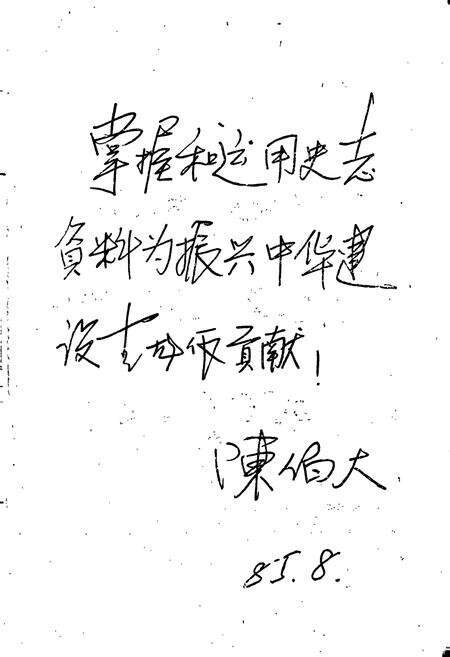 掌握和运用史志
资料为振兴中华建
设作贡献!
陳伯大
85.8.